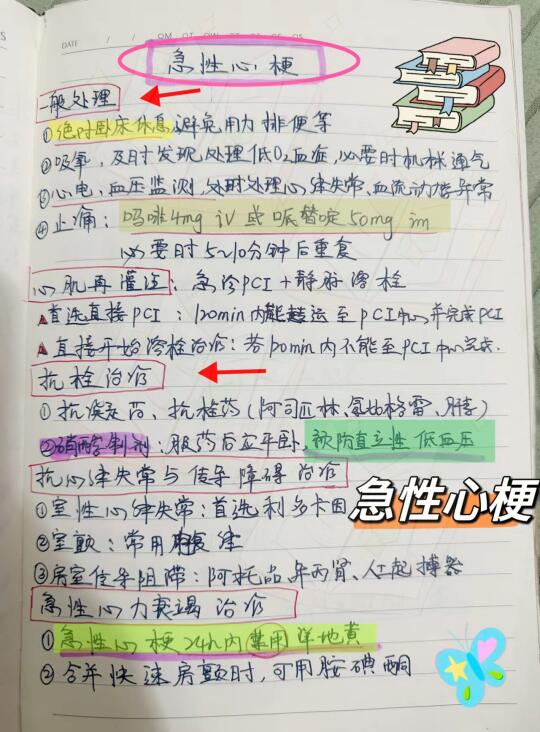 DATE / /
急性心梗
一般处理
①绝对卧床休息,避免用力排便等
②吸氧,及时发现,处理低O2血症,必要时机械通气
③心电,血压监测,及时处理心律失常,血流动力异常
④止痛:吗啡4mg iv 或哌替啶50mg im
必要时5~10分钟后重复
心肌再灌注:急诊PCI+静脉溶栓
首选直接PCI:120min内能转运至PCI中心并完成PCI
直接开始溶栓治疗:若120min内不能至PCI中心完成.
抗栓治疗
①抗凝药、抗栓药(阿司匹林、氯吡格雷、肝素)
②硝酸制剂:服药后应平卧,预防直立性低血压
抗心律失常与传导障碍治疗
①室性心律失常:首选利多卡因
急性心梗
②室颤:常用
③房室传导阻滞:阿托品、异丙肾、人工起搏器
急性心力衰竭治疗
①急性心梗24h内禁用洋地黄
②合并快速房颤时,可用胺碘酮